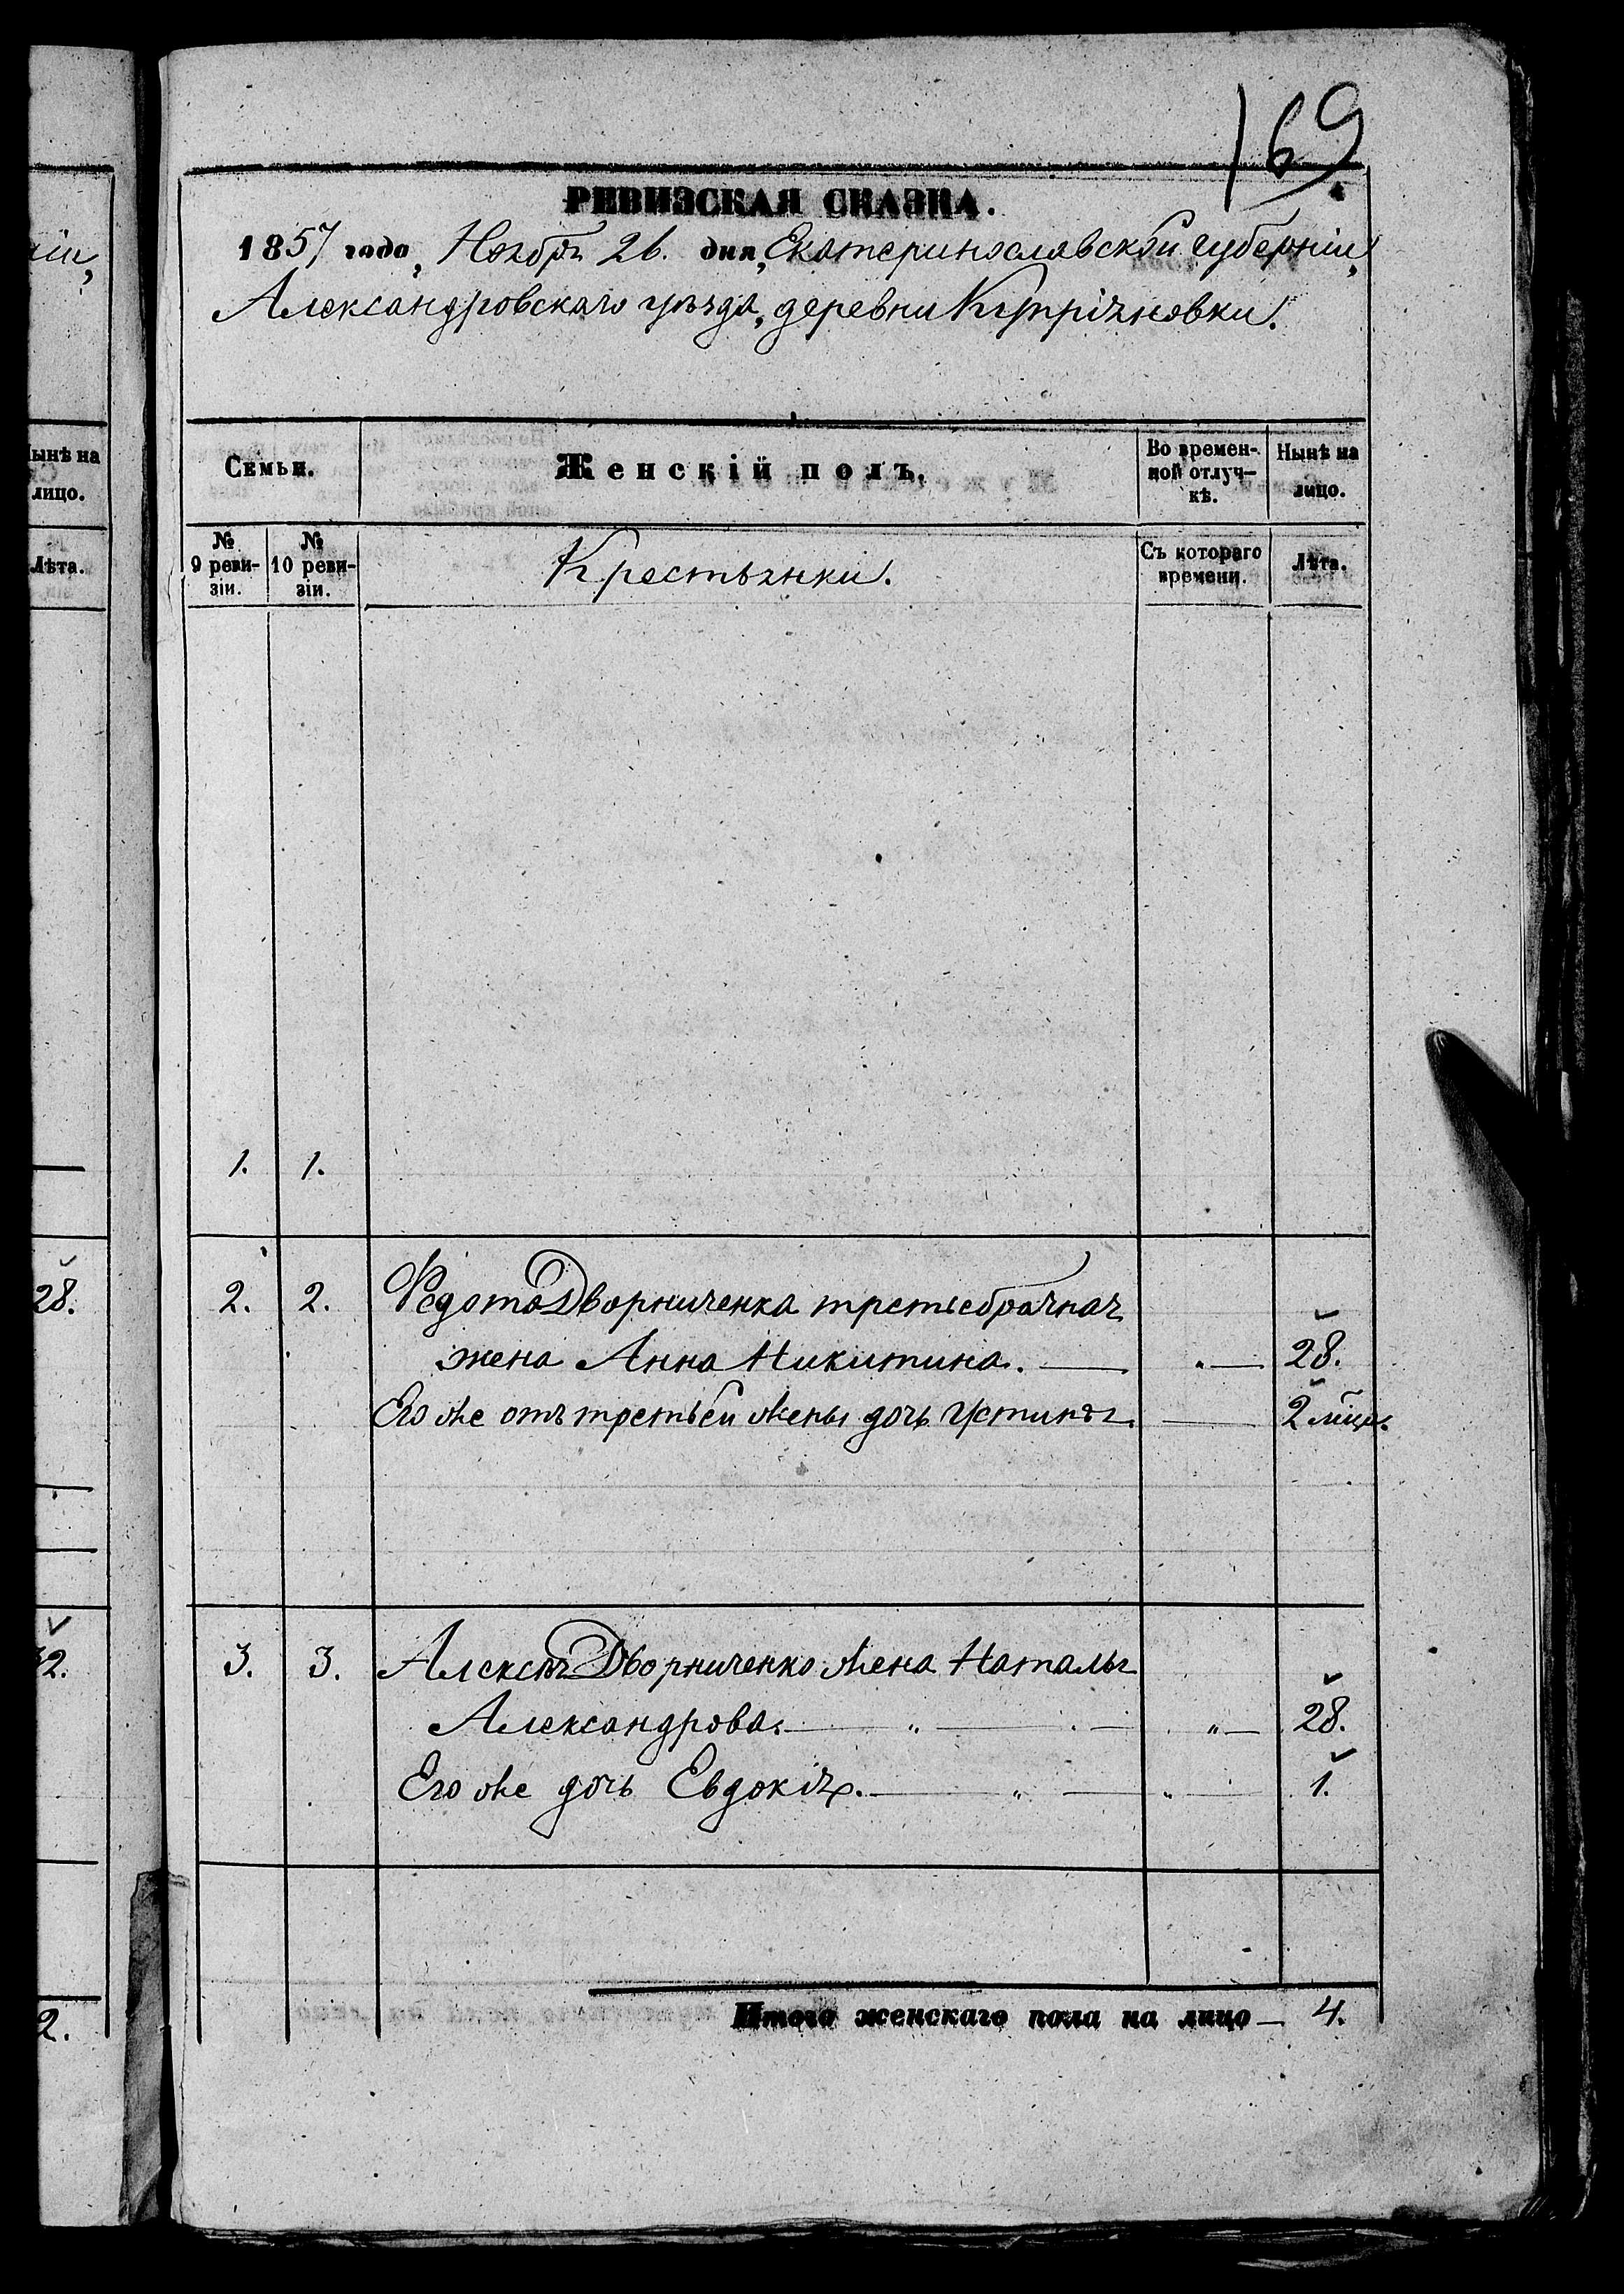 169
іи,
РЕВИЗСКАЯ СКАЗКА.
1857 года, Ноября 26. дня, Екатеринославской губерніи,
Александровскаго уѣзда, деревни Купріяновки.
Нынѣ на лицо.
Лѣта.
Семьи.
Женскій полъ.
Во времен-
ной отлуч-
кѣ.
Нынѣ на
лицо.
№
9 реви-
зіи.
№
10 реви-
зіи.
Крестьянки.
Съ котораго
времени.
Лѣта.
1. 1.
28.
2. 2. Федота Дворниченка третьебрачная
жена Анна Никитина. — „ — 28.
Его же отъ третьей жены дочь Устинья. — 2 мѣця.
32.
3. 3. Алексѣя Дворниченко жена Наталья
Александрова. — „ — „ — 28.
Его же дочь Евдокія. — „ — „ — 1.
2.
Итого женскаго пола на лицо — 4.